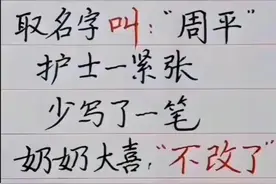 取名字叫:“周平”
护士一紧张
少写了一笔
奶奶大喜,“不改了”